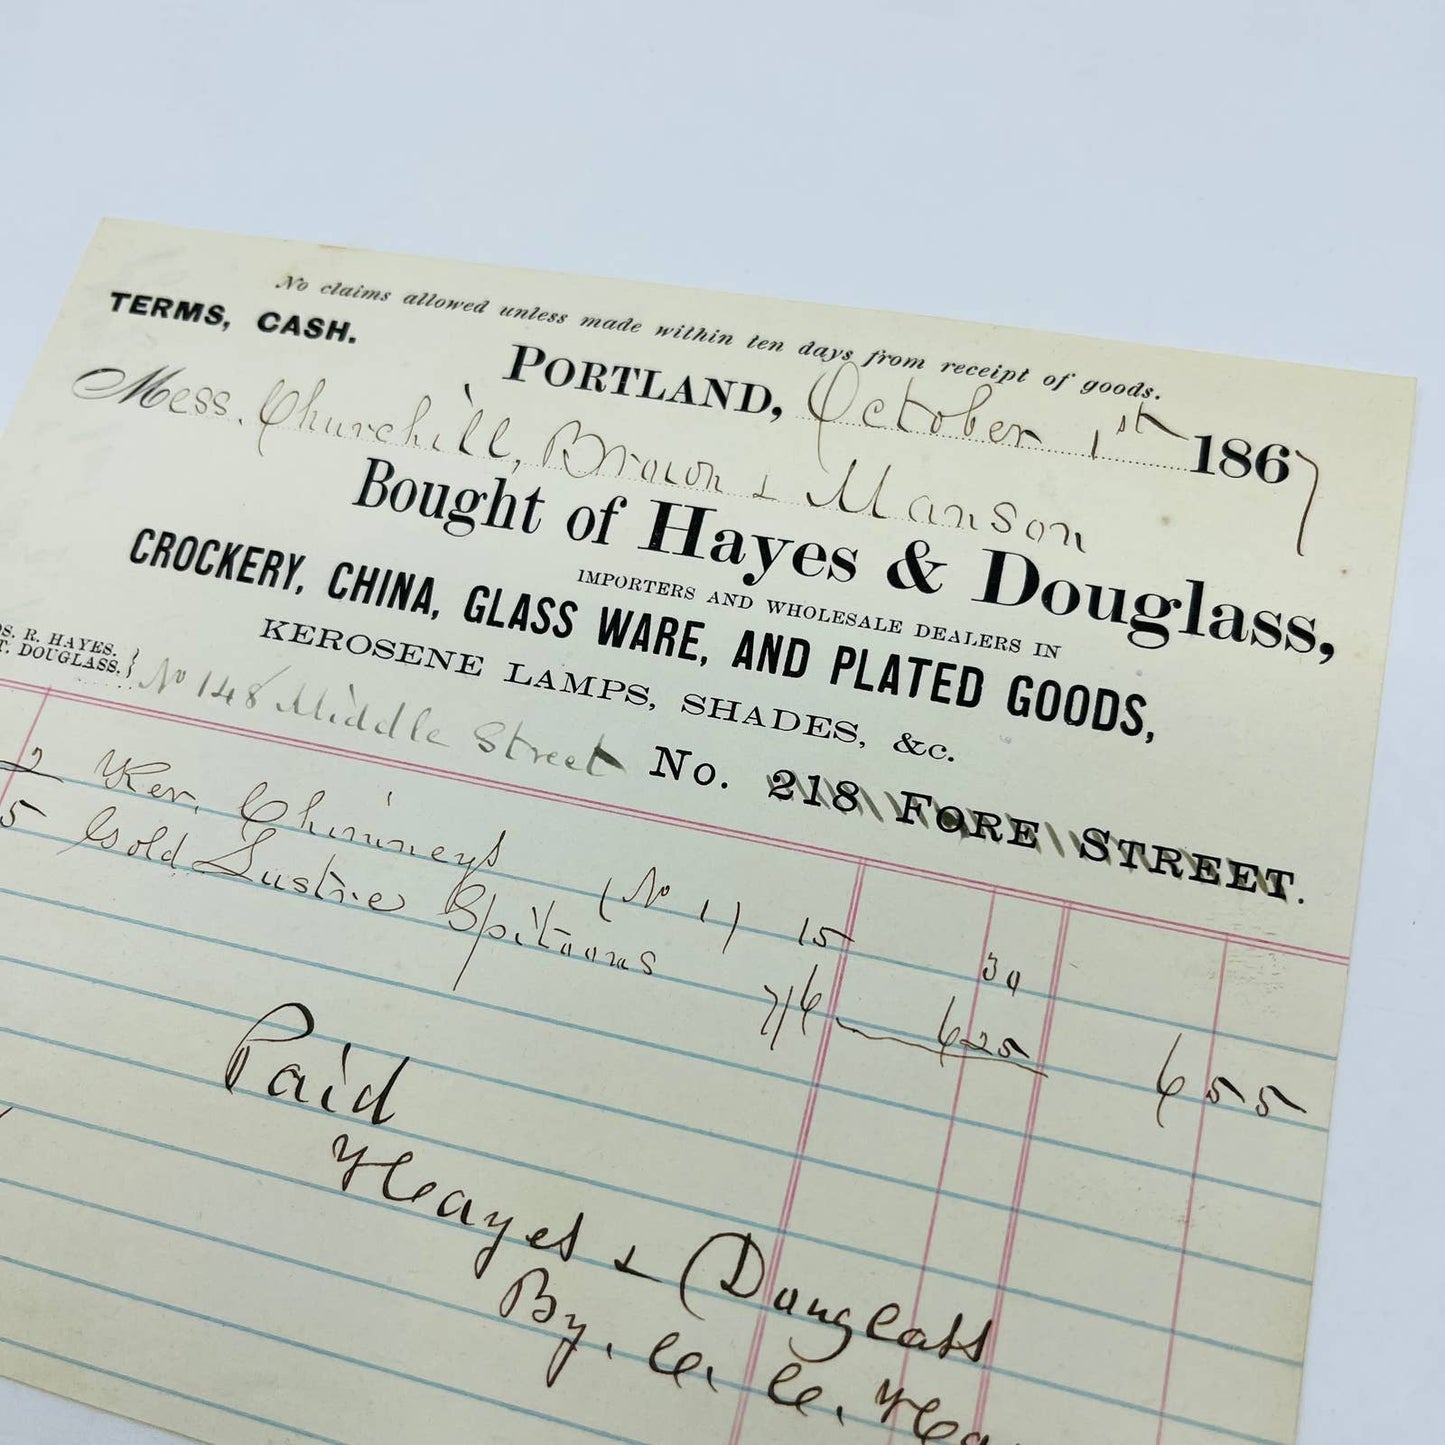 No claims allowed unless made within ten days from receipt of goods.
TERMS, CASH.
PORTLAND, October 1st 1867
Mess. Churchill, Brown & Manson
Bought of Hayes & Douglass,
IMPORTERS AND WHOLESALE DEALERS IN
CROCKERY, CHINA, GLASS WARE, AND PLATED GOODS,
KEROSENE LAMPS, SHADES, &c.
S. R. HAYES.
T. DOUGLASS.
No 148 Middle Street No. 218 FORE STREET.
2 Ker. Chimneys (No 1) 15 30
5 Gold Lustre Spitoons 7/6 6 25 6 55
Paid
Hayes & Douglass
By. C. C.